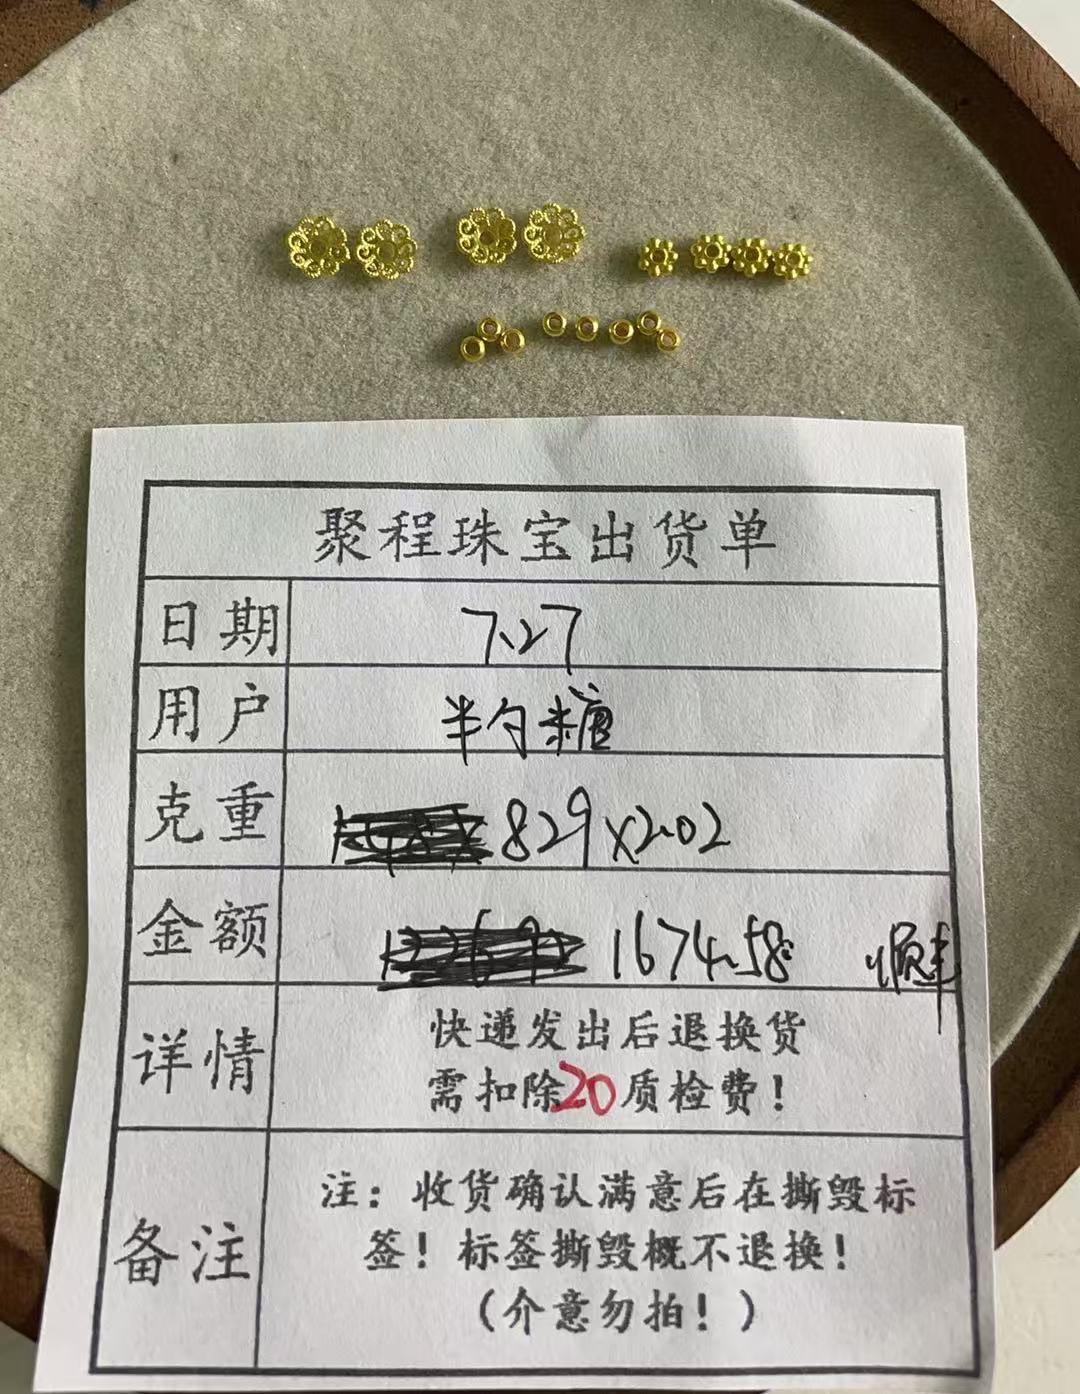 聚程珠宝出货单
日期 7.27
用户 半勺糖
克重 829×2.02
金额 1674.58 顺丰
详情 快递发出后退换货
需扣除20质检费!
备注 注:收货确认满意后在撕毁标
签!标签撕毁概不退换!
(介意勿拍!)